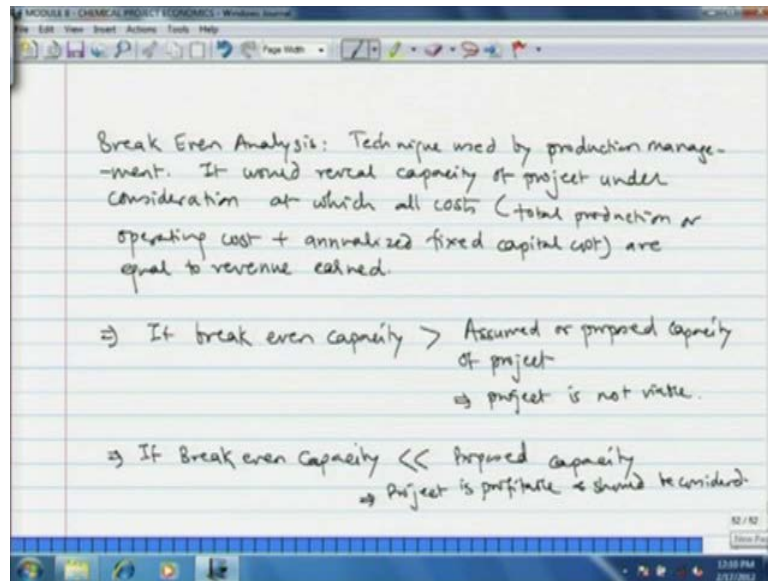 MODULE 8 - CHEMICAL PROJECT ECONOMICS - Windows Journal
File Edit View Insert Actions Tools Help
Page Width
Break Even Analysis: Technique used by production manage-
-ment. It would reveal capacity of project under
consideration at which all costs (total production or
operating cost + annualized fixed capital cost) are
equal to revenue earned.
⇒ If break even capacity > Assumed or proposed capacity
of project
⇒ project is not viable.
⇒ If Break even Capacity << Proposed capacity
⇒ Project is profitable & should be considered.
52 / 52
New Pag
12:10 PM
2/17/2012